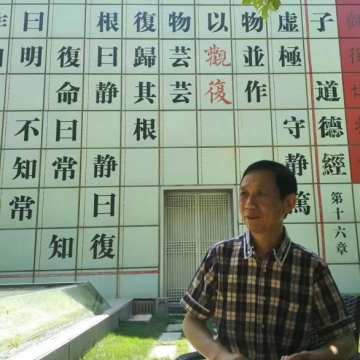 子道德經第十六章
虛極守靜篤
物並作
以觀復
物芸芸
復歸其根
根曰靜靜曰復
復命曰常知
曰明不知常